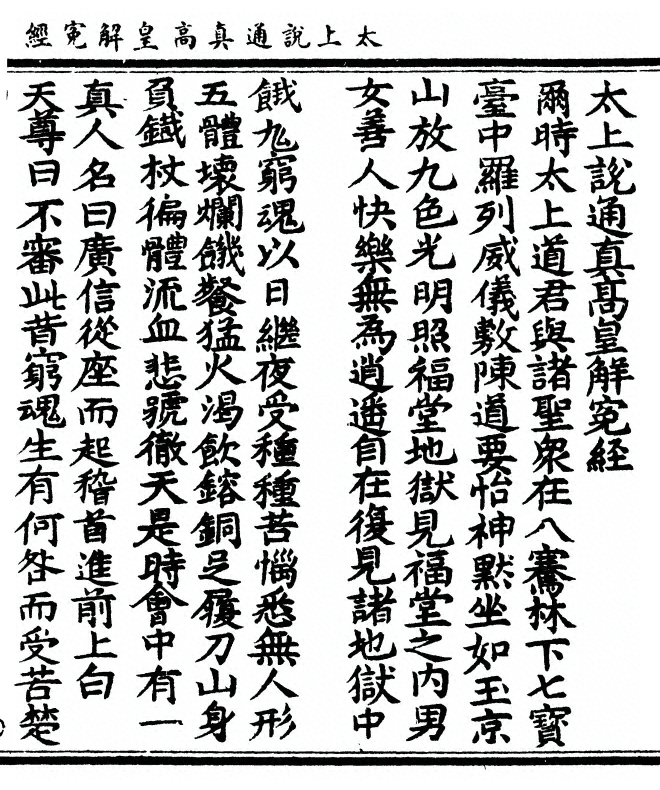 太上說通真高皇解寃經
太上說通真髙皇解寃經
爾時太上道君與諸聖衆在八騫林下七寶
臺中羅列威儀敷陳道要怡神默坐如玉京
山放九色光明照福堂地獄見福堂之内男
女善人快樂無為逍遥自在復見諸地獄中
餓鬼窮魂以日繼夜受種種苦惱悉無人形
五體壞爛饑餐猛火渴飲鎔銅足履刀山身
負鐵杖徧體流血悲號徹天是時會中有一
真人名曰廣信從座而起稽首進前上白
天尊曰不審此昔窮魂生有何咎而受苦楚